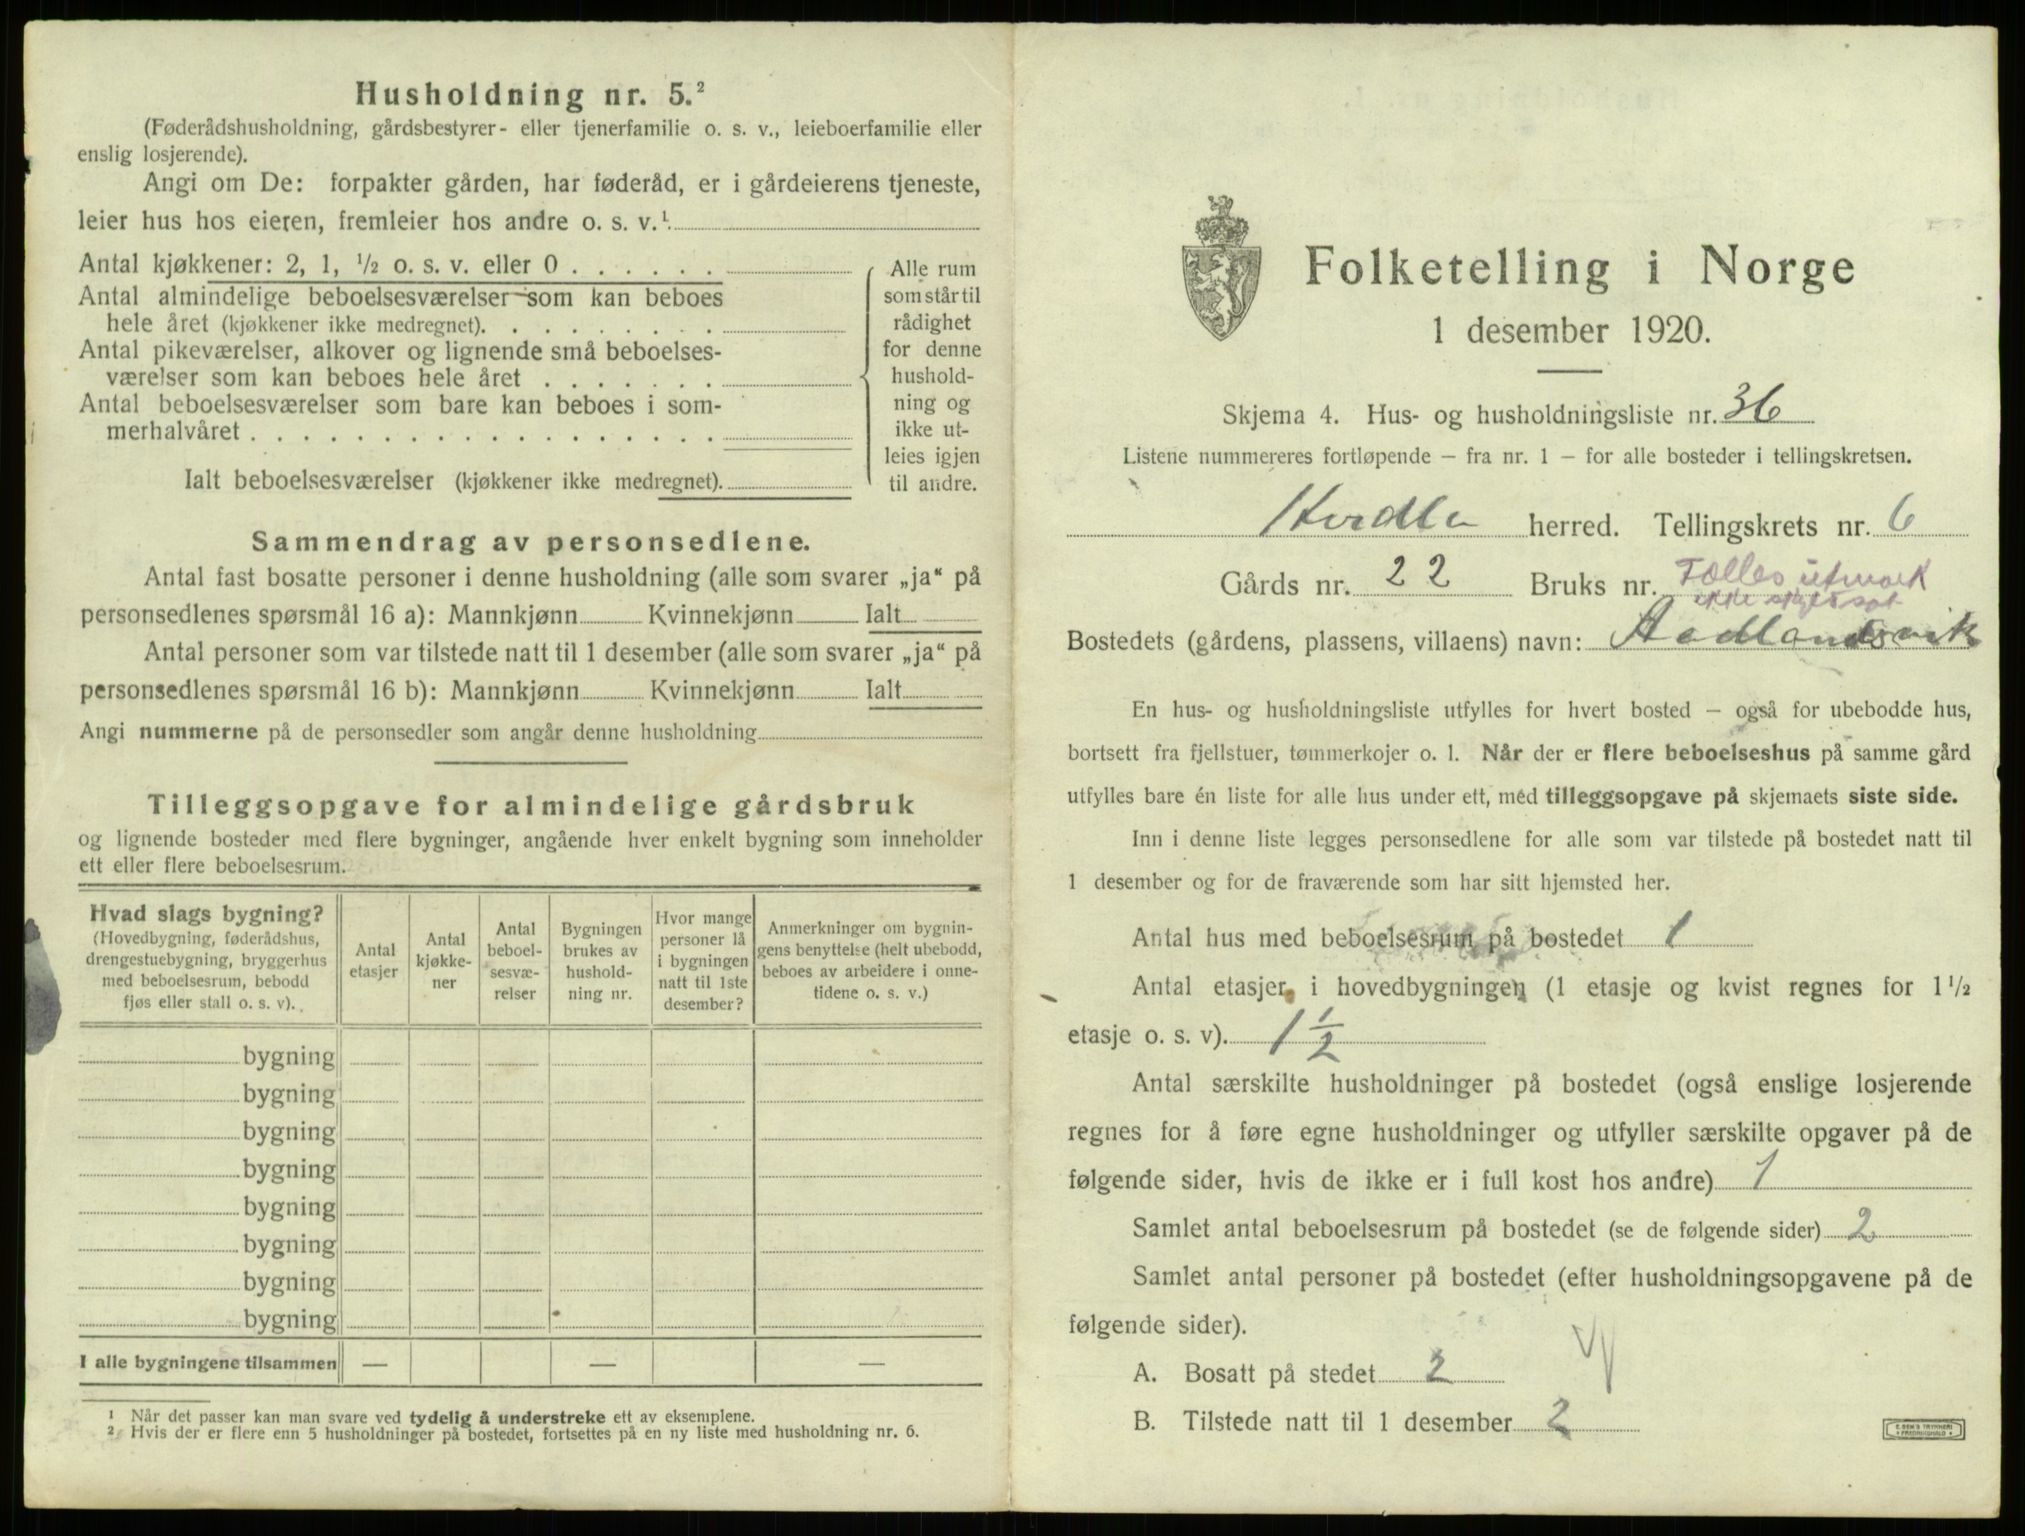 Husholdning nr. 5.²
(Føderådshusholdning, gårdsbestyrer- eller tjenerfamilie o. s. v., leieboerfamilie eller
enslig losjerende).
Angi om De: forpakter gården, har føderåd, er i gårdeierens tjeneste,
leier hus hos eieren, fremleier hos andre o. s. v.¹
Antal kjøkkener: 2, 1, ½ o. s. v. eller 0 . . . . . .
Antal almindelige beboelsesværelser som kan beboes
hele året (kjøkkener ikke medregnet). . . . . . . . .
Antal pikeværelser, alkover og lignende små beboelses-
værelser som kan beboes hele året . . . . . . .
Antal beboelsesværelser som bare kan beboes i som-
merhalvåret . . . . . . . . . . . . . . . . . .
Ialt beboelsesværelser (kjøkkener ikke medregnet).
Alle rum
som står til
rådighet
for denne
hushold-
ning og
ikke ut-
leies igjen
til andre.
Sammendrag av personsedlene.
Antal fast bosatte personer i denne husholdning (alle som svarer „ja“ på
personsedlenes spørsmål 16 a): Mannkjønn Kvinnekjønn Ialt
Antal personer som var tilstede natt til 1 desember (alle som svarer „ja“ på
personsedlenes spørsmål 16 b): Mannkjønn Kvinnekjønn Ialt
Angi nummerne på de personsedler som angår denne husholdning
Tilleggsopgave for almindelige gårdsbruk
og lignende bosteder med flere bygninger, angående hver enkelt bygning som inneholder
ett eller flere beboelsesrum.
Hvad slags bygning?
(Hovedbygning, føderådshus,
drengestuebygning, bryggerhus
med beboelsesrum, bebodd
fjøs eller stall o. s. v).
Antal
etasjer
Antal
kjøkke-
ner
Antal
beboel-
sesvæ-
relser
Bygningen
brukes av
hushold-
ning nr.
Hvor mange
personer lå
i bygningen
natt til 1ste
desember?
Anmerkninger om bygnin-
gens benyttelse (helt ubebodd,
beboes av arbeidere i onne-
tidene o. s. v.)
bygning
bygning
bygning
bygning
bygning
bygning
bygning
bygning
I alle bygningene tilsammen — — —
¹ Når det passer kan man svare ved tydelig å understreke ett av eksemplene.
² Hvis der er flere enn 5 husholdninger på bostedet, fortsettes på en ny liste med husholdning nr. 6.
Folketelling i Norge
1 desember 1920.
Skjema 4. Hus- og husholdningsliste nr. 36
Listene nummereres fortløpende – fra nr. 1 – for alle bosteder i tellingskretsen.
Herdla herred. Tellingskrets nr. 6
Gårds nr. 22 Bruks nr. Fælles utmark
ikke
Bostedets (gårdens, plassens, villaens) navn: Aadlandsvik
En hus- og husholdningsliste utfylles for hvert bosted – også for ubebodde hus,
bortsett fra fjellstuer, tømmerkojer o. l. Når der er flere beboelseshus på samme gård
utfylles bare én liste for alle hus under ett, med tilleggsopgave på skjemaets siste side.
Inn i denne liste legges personsedlene for alle som var tilstede på bostedet natt til
1 desember og for de fraværende som har sitt hjemsted her.
Antal hus med beboelsesrum på bostedet 1
Antal etasjer i hovedbygningen (1 etasje og kvist regnes for 1½
etasje o. s. v). 1½
Antal særskilte husholdninger på bostedet (også enslige losjerende
regnes for å føre egne husholdninger og utfyller særskilte opgaver på de
følgende sider, hvis de ikke er i full kost hos andre) 1
Samlet antal beboelsesrum på bostedet (se de følgende sider) 2
Samlet antal personer på bostedet (efter husholdningsopgavene på de
følgende sider).
A. Bosatt på stedet 2
B. Tilstede natt til 1 desember 2
E. SEM'S TRYKKERI
FREDRIKSHALD